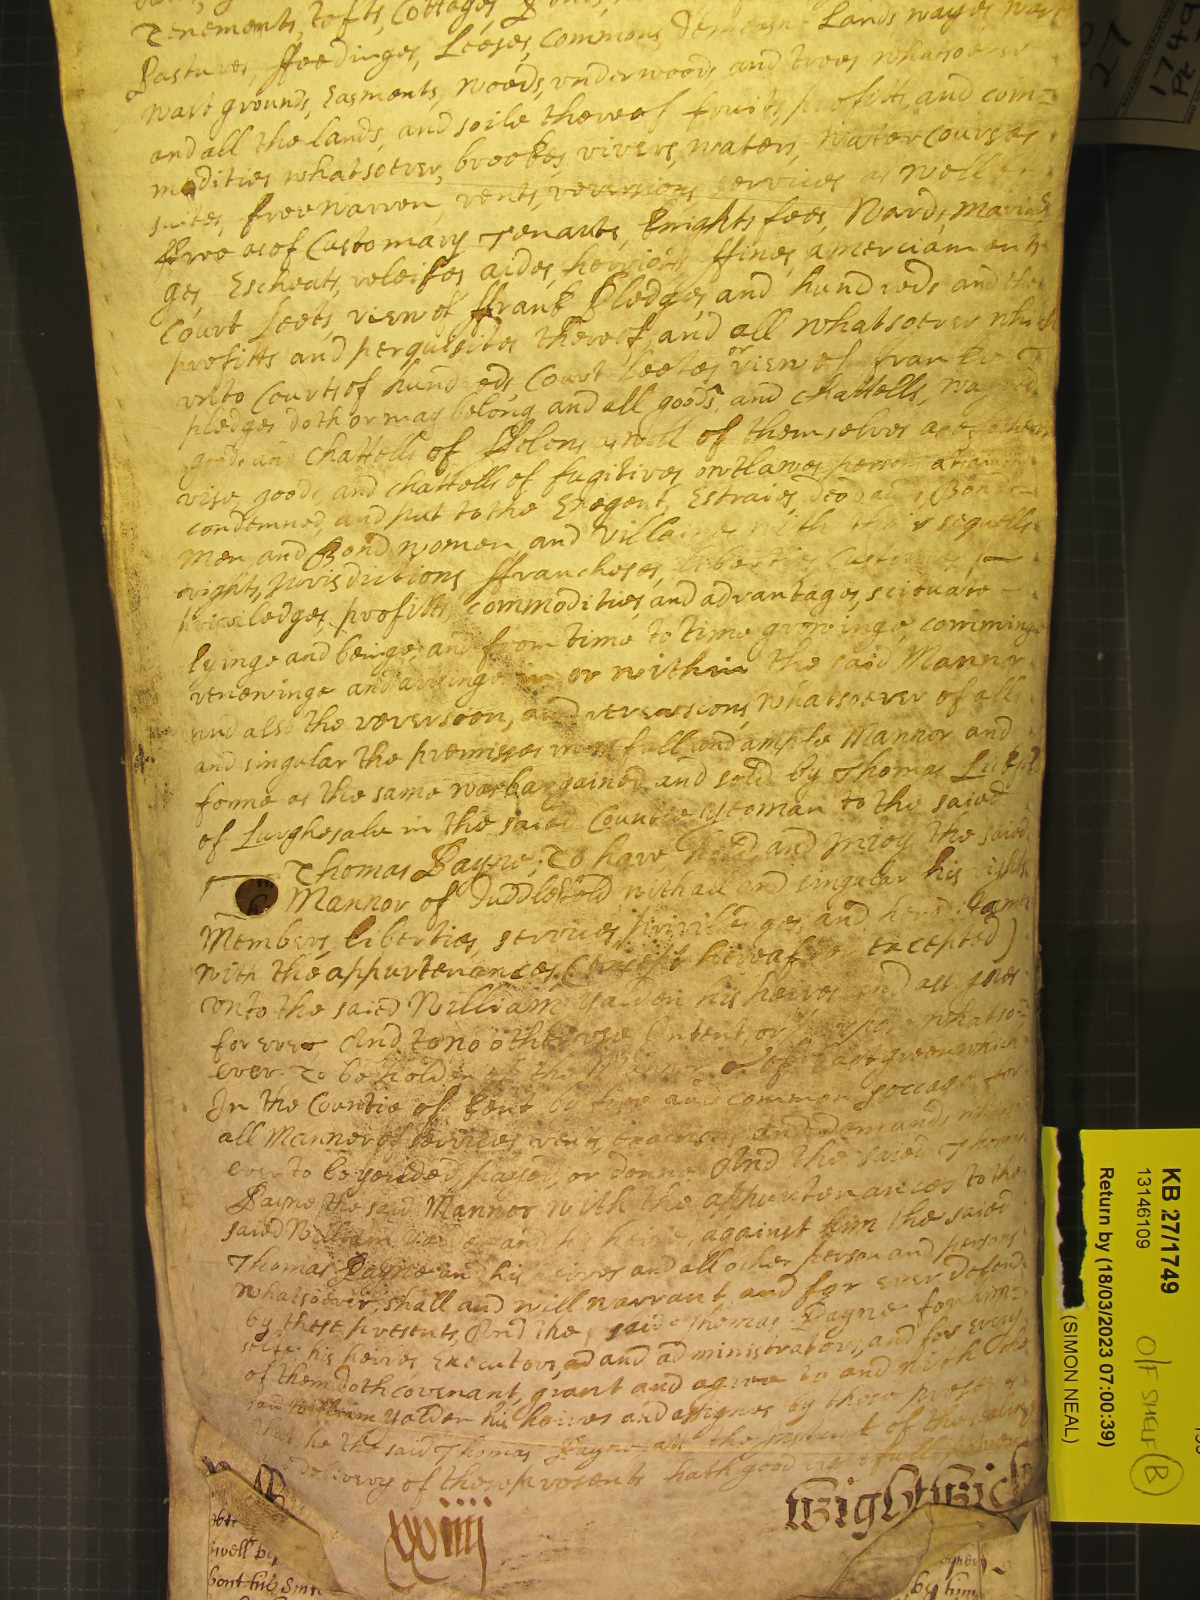 Tenements, tofts, Cottages
Pastures, ffeedinges, Leeses, commons, demeasne Lands, wayes, wast
wast grounds, Easments, woods, underwoods and trees whatsoever
and all the lands, and soile thereof fruits, profitts, and com=
modities whatsoever, brookes, rivers, waters, water courses
suites, free warren, rents, reversions services as well of
ffree as of Customary Tenants, Knights fees, Wards, maria
ges, Escheats, releifes, aides, heriotts, ffines, amerciaments
Court Leets, view of ffrank Pledges, and hundreds and the
profitts and perquisites thereof, and all whatsoever which
unto Courts of hundreds, Court Leetes or view of franke
pledges doth or may belong, and all goods, and chattells, wayved
goods and chattells of ffelons as well of themselves as of other
wise, goods, and chattells of fugitives outlawes, persons attain
condemned, and put to the Exegent, Estraies, deodands Bond=
men, and Bond women, and Villaines with their sequells
rights, Jurisdictions ffrancheses, liberties Customes
priviledges, profitts, commodities, and advantages, scituate
lyinge and beinge, and from time to time growinge, comminge
renewinge and ariseinge in or within the said Mannor
and also the reversion, and reversions, whatsoever of all
and singular the premisses in as full and ample Mannor and
forme as the same was bargained and sold by Thomas
of Lurghesale in the saied Countie yeoman to the saied
Thomas Payne, To have hold, and injoy the saied
Mannor of with all and singular his rights
Members, liberties, services, priviledges, and
with the appurtenances, (Except hereafter excepted)
unto the saied William Yalden his heires and assignes
for ever And to no other use, Intent, or purpose whatso=
ever To be holden of the Mannor of East greenwich
In the Countie of Kent by free and common soccage for
all Manner of services, rents, and demands,
ever to be yeilded, payed, or donne And the saied Thomas
Payne the said Mannor with the appurtenances to the
saied William Yalden and his heires, against him the saied
Thomas Payne and his heires and all other person and persons
whatsoever, shall and will warrant and for ever defend
by these presents, And the said Thomas Payne for him=
selfe his heires, Executors, ad and administrators, and for every
of them doth covenant, grant and agree to and with the
said William Yalden his heires and assignes by these presents
that he the said Thomas Payne att the instant of the sealing
delivery of these presents hath good
Wightwick
xxiiij
KB 27/1749
13146109
Return by (18/03/2023 07:00:39)
(SIMON NEAL)
O/F SHELF B